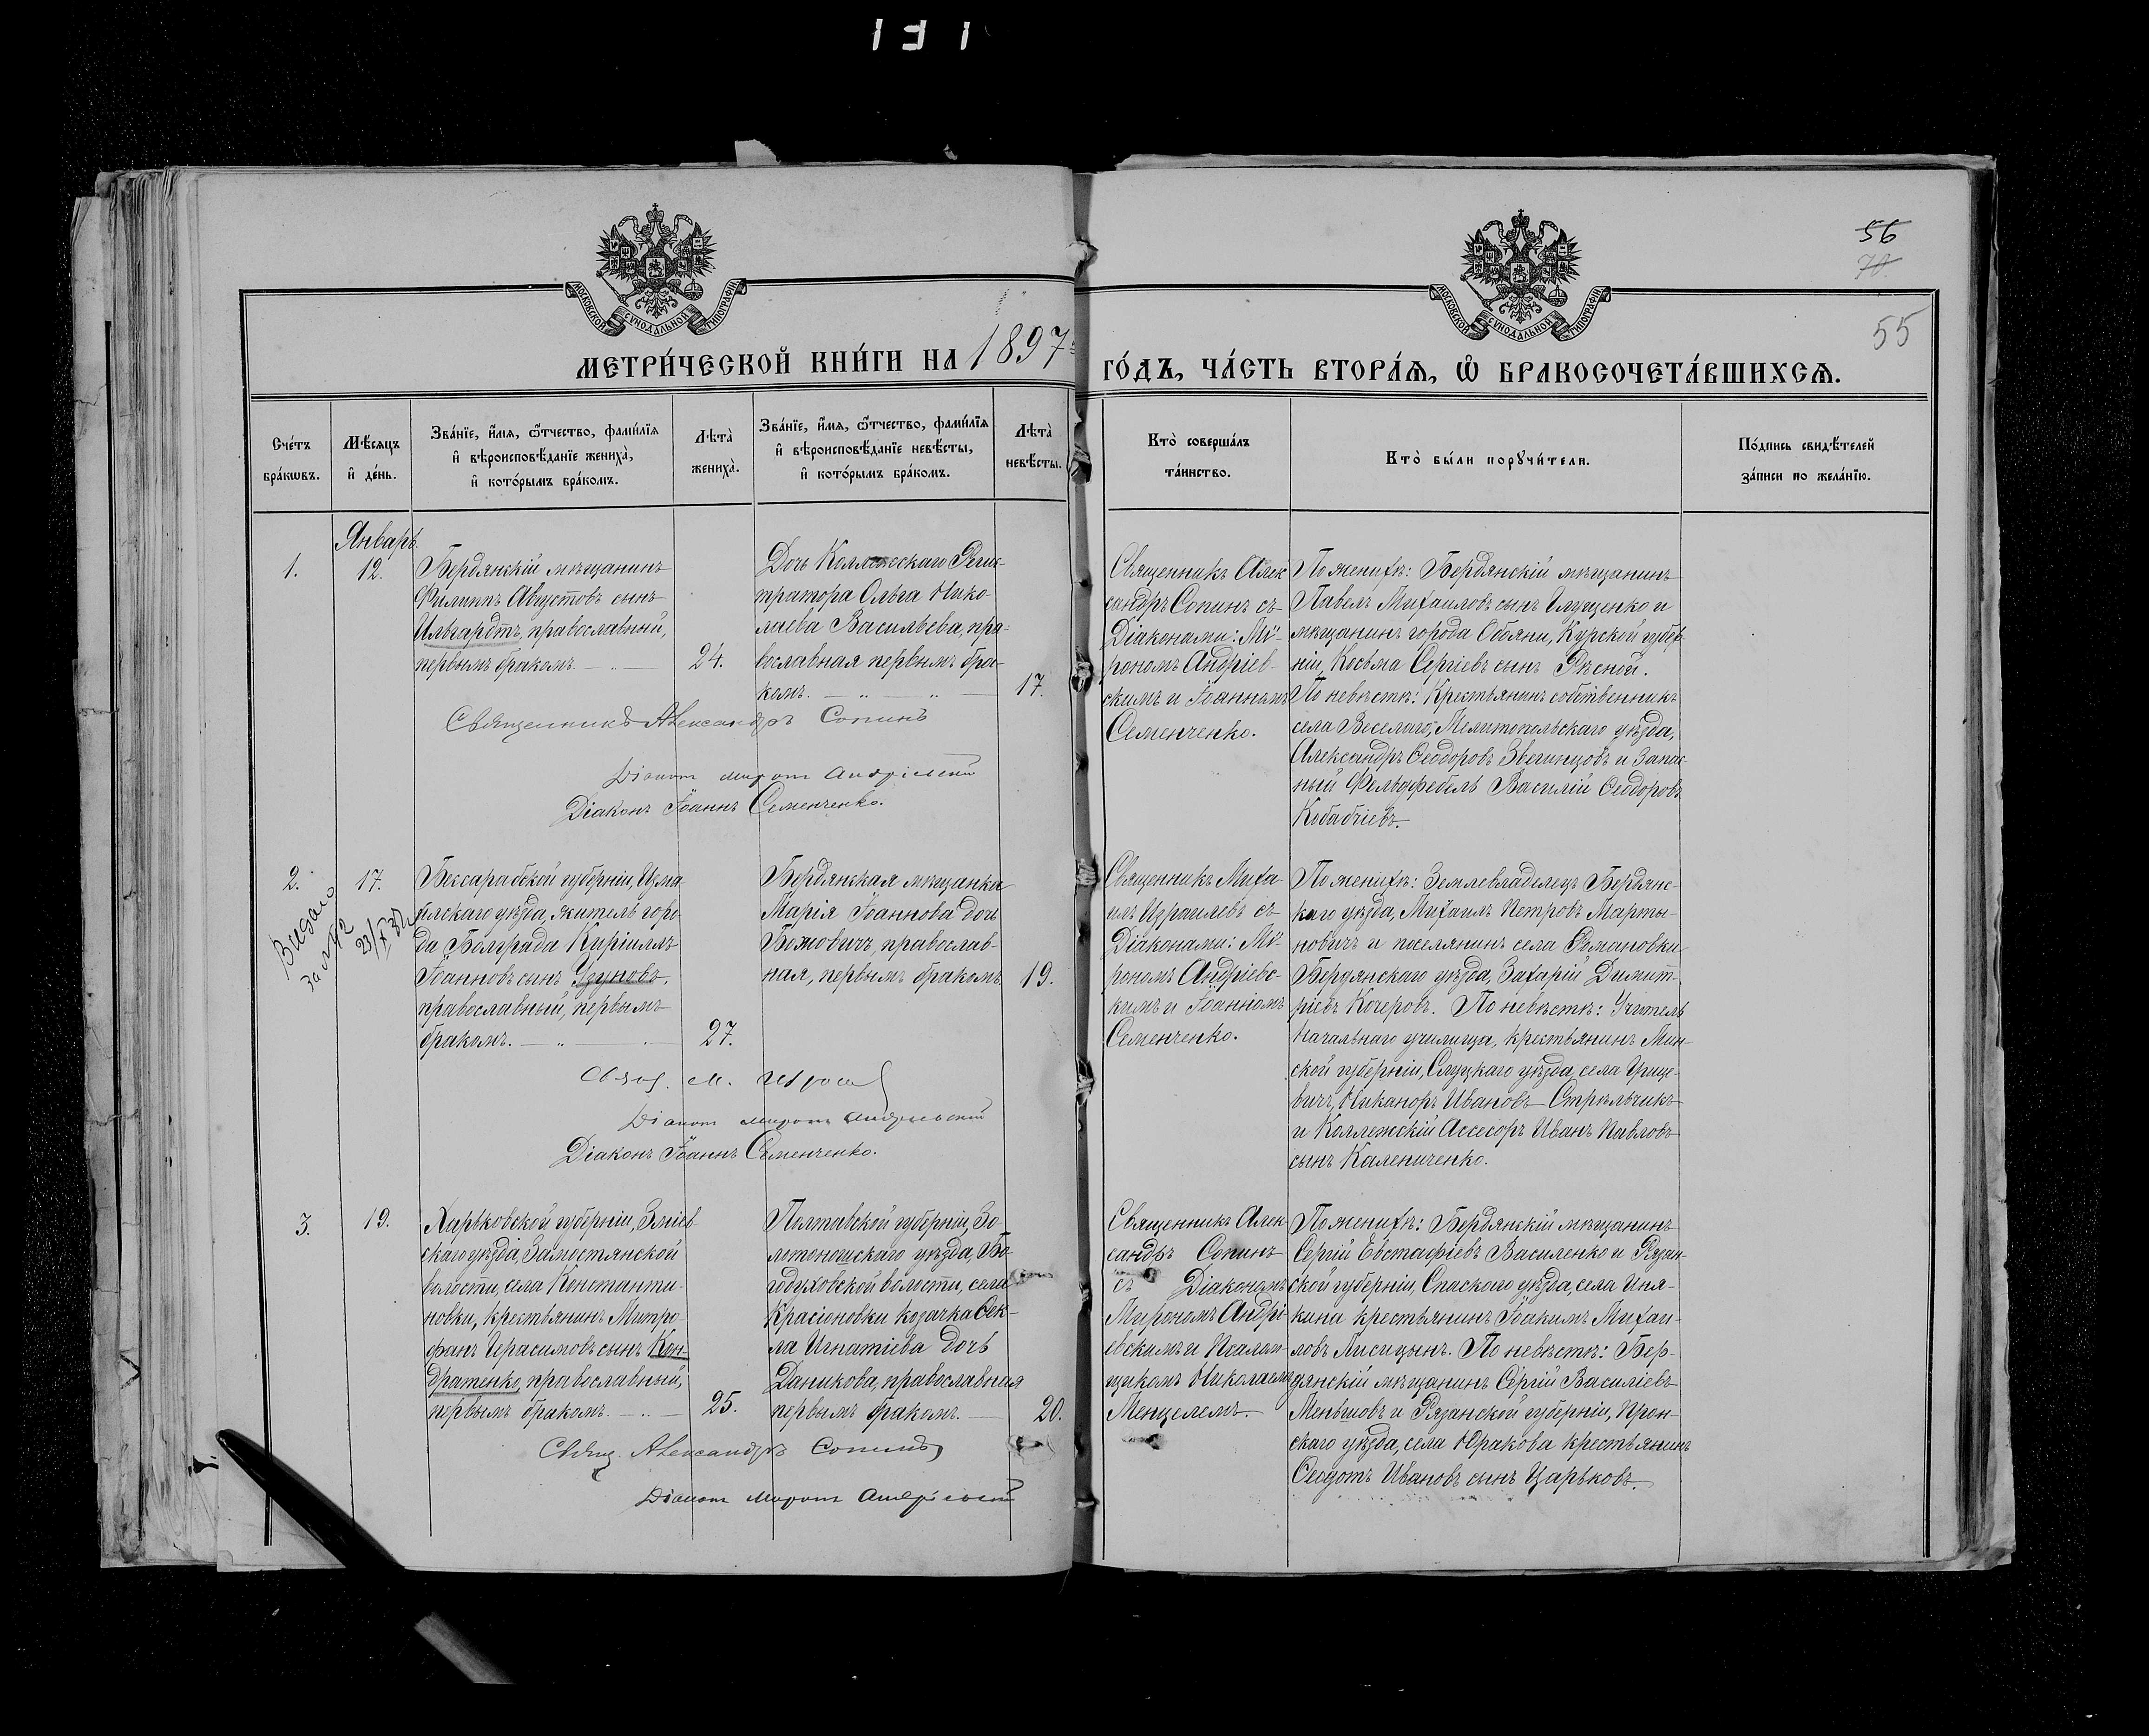 131
56
70.
55
МОСКОВСКОЙ СѴНОДАЛЬНОЙ ТИПОГРАФІИ
МОСКОВСКОЙ СѴНОДАЛЬНОЙ ТИПОГРАФІИ
МЕТРИ́ЧЕСКОЙ КНИ́ГИ НА 1897 ГО́ДЪ, ЧА́СТЬ ВТОРА́Ѧ, Ѽ БРАКОСОЧЕТА́ВШИХСѦ.
Сче́тъ
бра́кѡвъ.
Мѣ́сяцъ
и҆ де́нь.
Зва́нїе, и҆́мя, ѻ҆́тчество, фами́лїя
и҆ вѣроисповѣ́данїе жениха̀,
и҆ кото́рымъ бра́комъ.
Лѣта̀
жениха̀.
Зва́нїе, и҆́мя, ѻ҆́тчество, фами́лїя
и҆ вѣроисповѣ́данїе невѣ́сты,
и҆ кото́рымъ бра́комъ.
Лѣта̀
невѣ́сты.
Кто̀ соверша́лъ
та́инство.
Кто̀ бы́ли порꙋчи́тели.
По́дпись свидѣ́телей
за́писи по жела́нїю.
1.
Январь.
12.
Бердянскій мѣщанинъ
Филиппъ Августовъ сынъ
Ильгардтъ, православный,
первымъ бракомъ.
24.
Дочь Коллежскаго Регис-
тратора Ольга Нико-
лаева Васильева, пра-
вославная первымъ бра-
комъ.
17.
Священникъ Алек
сандръ Сопинъ съ
Діаконами: Мѵ-
рономъ Андріев-
скимъ и Іоанномъ
Семенченко.
По женихѣ: Бердянскій мѣщанинъ
Павелъ Михаиловъ сынъ Глущенко и
мѣщанинъ города Обояни, Курской губер-
ніи, Косьма Сергіевъ сынъ Рѣсной.
По невѣстѣ: Крестьянинъ собственникъ
села Веселаго, Мелитопольскаго уѣзда,
Александръ Ѳеодоровъ Звегинцовъ и Запас-
ный Фельдфебель Василій Ѳеодоровъ
Кобабчіевъ.
Священникъ Александръ Сопинъ
Діаконъ Миронъ Андріевскій
Діаконъ Іоаннъ Семенченко.
2.
17.
Видано
за № 2
23/X
Бессарабской губерніи, Изма-
илскаго уѣзда, житель горо-
да Болграда Кириллъ
Іоанновъ сынъ Узуновъ,
православный, первымъ
бракомъ.
27.
Бердянская мѣщанка
Марія Іоаннова дочь
Божовичъ, православ-
ная, первымъ бракомъ.
19.
Священникъ Миха-
илъ Израилевъ съ
Діаконами: Мѵ-
рономъ Андріевс-
кимъ и Іоанномъ
Семенченко.
По женихѣ: Землевладелецъ Бердянс-
каго уѣзда, Михаилъ Петровъ Марты-
новичъ и поселянинъ села Романовки
Бердянскаго уѣзда, Захарій Димит-
ріевъ Кочеровъ. По невѣстѣ: Учитель
Начальнаго училища, крестьянинъ Мин-
ской губерніи, Слуцкаго уѣзда, села Грице-
вичъ, Никаноръ Ивановъ Стрѣльчикъ
и Коллежскій Ассесоръ Иванъ Павловъ
сынъ Калениченко.
Свящ. М.
Діаконъ Миронъ Андріевскій
Діаконъ Іоаннъ Семенченко.
3.
19.
Харьковской губерніи, Зміев
скаго уѣзда, Замостянской
волости, села Константи-
новки, крестьянинъ Митро-
фанъ Герасимовъ сынъ Кон-
дратенко, православный,
первымъ бракомъ.
25.
Полтавской губерніи, Зо-
лотоношскаго уѣзда, Бо-
годуховской волости, села
Красіоновки козачка Ѳек-
ла Игнатіева дочь
Даникова, православная
первымъ бракомъ.
20.
Священникъ Алек-
сандръ Сопинъ
съ Діакономъ
Мирономъ Андрі-
евскимъ и Псалом-
щикомъ Николаемъ
Менцелемъ.
По женихѣ: Бердянскій мѣщанинъ
Сергій Евстафіевъ Василенко и Рязан-
ской губерніи, Спаскаго уѣзда, села Иня-
кина крестьянинъ Іоакимъ Михаи-
ловъ Лисицынъ. По невѣстѣ: Бер-
дянскій мѣщанинъ Сергій Василіевъ
Меньшовъ и Рязанской губерніи, Прон-
скаго уѣзда, села Юракова крестьянинъ
Ѳеодотъ Ивановъ сынъ Царьковъ.
Свящ. Александръ Сопинъ
Діаконъ Миронъ Андріевскій